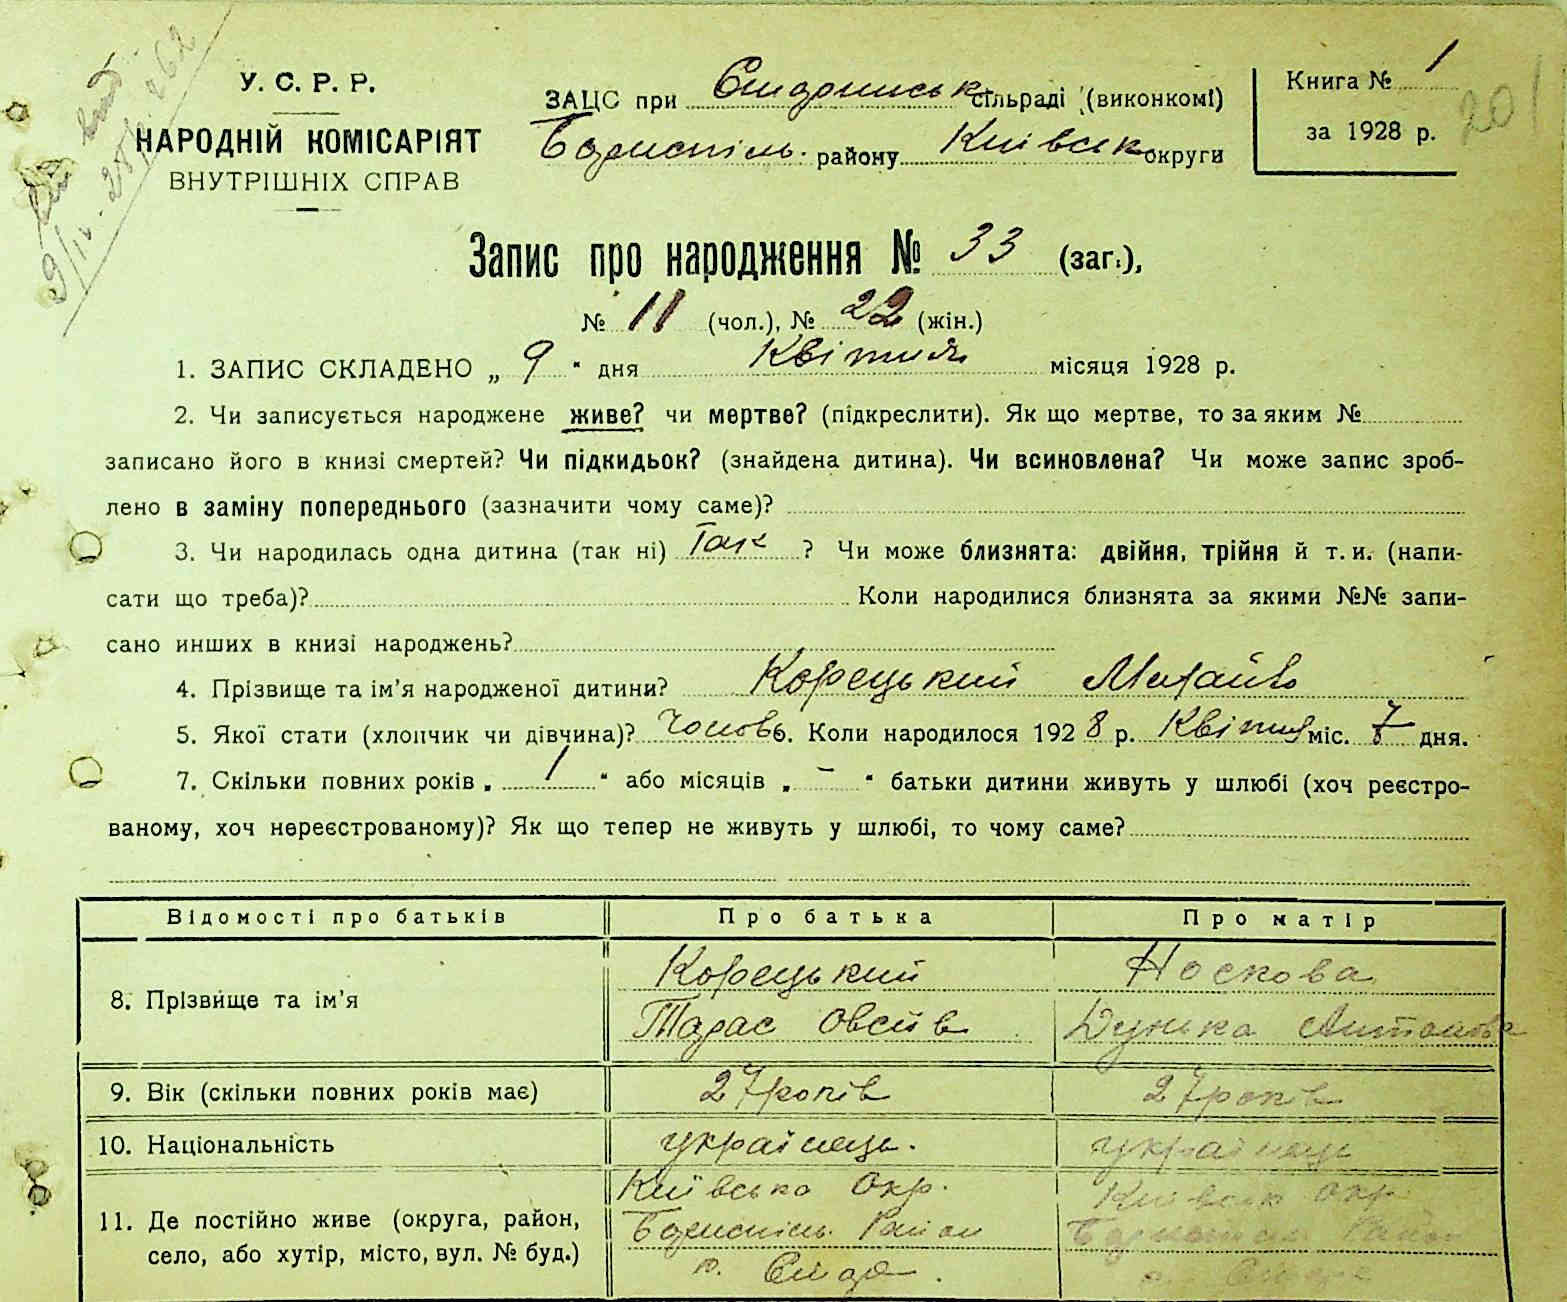 У. С. Р. Р.
НАРОДНІЙ КОМІСАРІЯТ
ВНУТРІШНІХ СПРАВ
ЗАЦС при сільраді (виконкомі)
Бориспіль. району Київськ округи
Книга № 1
за 1928 р.
201
Запис про народження № 33 (заг.),
№ 11 (чол.), № 22 (жін.)
1. ЗАПИС СКЛАДЕНО „ 9 “ дня Квітня місяця 1928 р.
2. Чи записується народжене живе? чи мертве? (підкреслити). Як що мертве, то за яким №
записано його в книзі смертей? Чи підкидьок? (знайдена дитина). Чи всиновлена? Чи може запис зроб-
лено в заміну попереднього (зазначити чому саме)?
3. Чи народилась одна дитина (так ні) Так ? Чи може близнята: двійня, трійня й т. и. (напи-
сати що треба)? Коли народилися близнята за якими №№ запи-
сано инших в книзі народжень?
4. Прізвище та ім’я народженої дитини? Корецький Михайло
5. Якої стати (хлопчик чи дівчина)? Чолов 6. Коли народилося 1928 р. Квітня міс. 7 дня.
7. Скільки повних років „ 1 “ або місяців „ – “ батьки дитини живуть у шлюбі (хоч реєстро-
ваному, хоч нереєстрованому)? Як що тепер не живуть у шлюбі, то чому саме?
Відомості про батьків Про батька Про матір
8. Прізвище та ім’я
Корецький
Тарас Овсіїв
Носкова
Дунька Антонова
9. Вік (скільки повних років має) 27 років 27 років
10. Національність українець. українець
11. Де постійно живе (округа, район,
село, або хутір, місто, вул. № буд.)
Київська Окр.
Бориспіль. Район
Київськ Окр.
Бориспіль Район